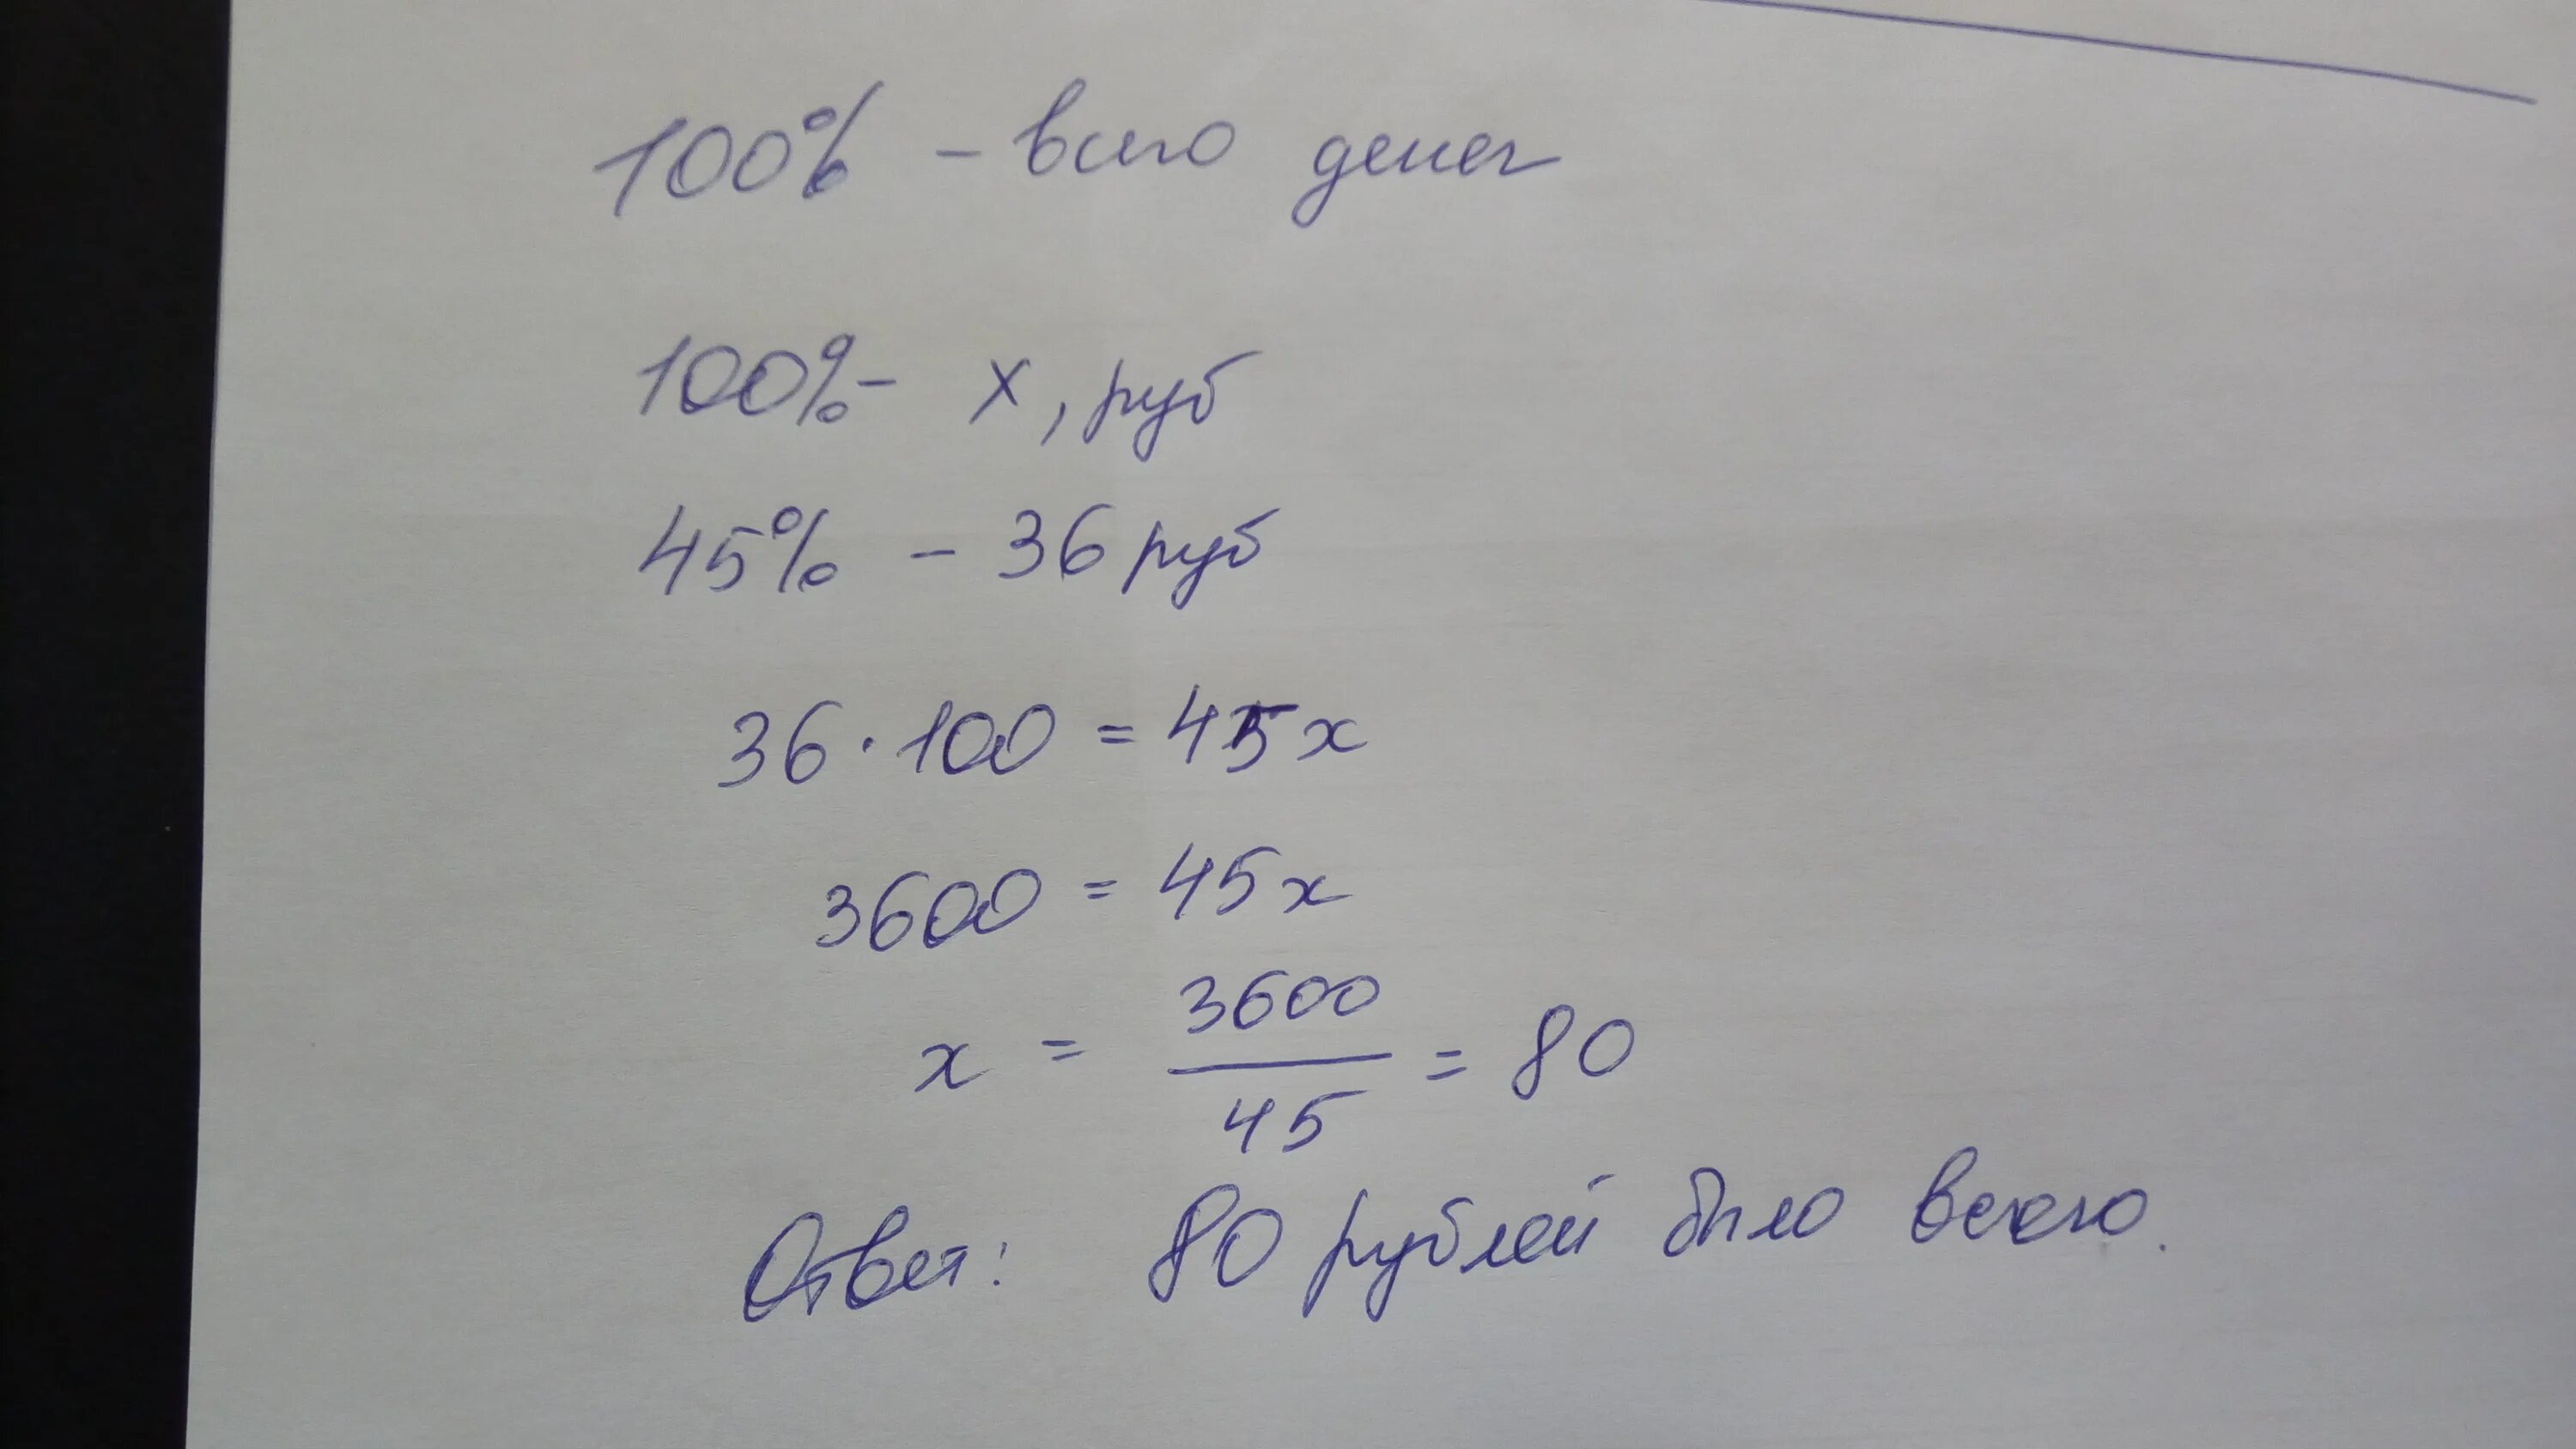 100% - всего денег
100% - x, руб
45% - 36 руб
36 · 100 = 45x
3600 = 45x
x = 3600/45 = 80
Ответ: 80 рублей было всего.